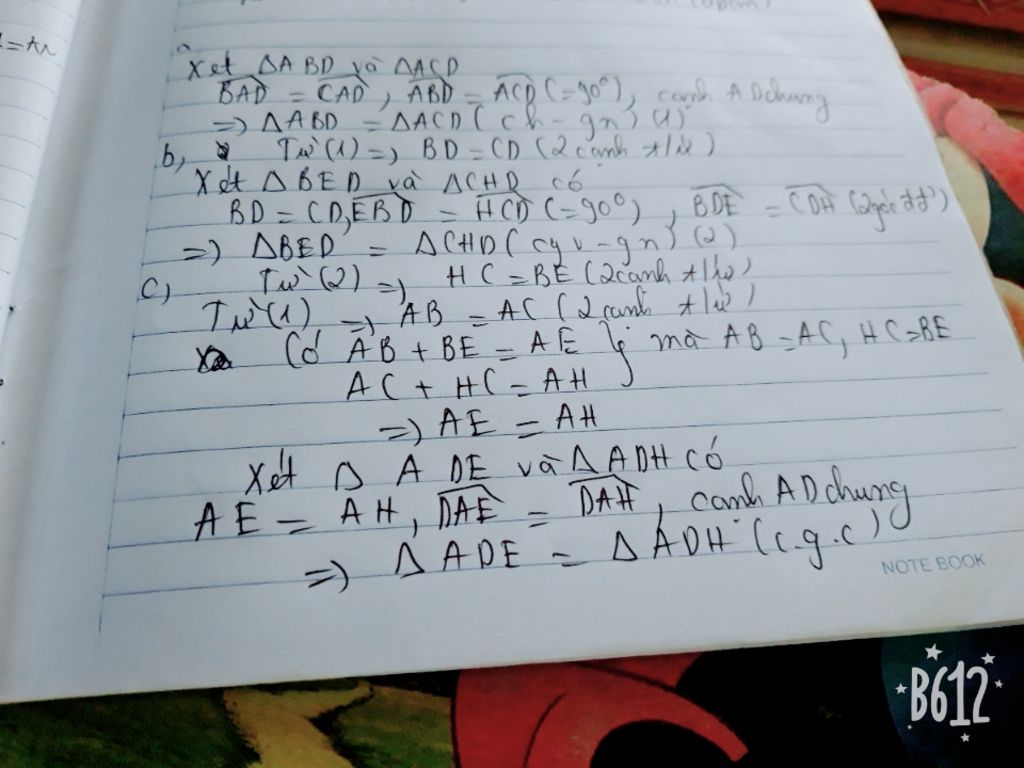 (đpcm)
a
Xét ΔABD và ΔACD
BAD = CAD, ABD = ACD (=90°), cạnh AD chung
=> ΔABD = ΔACD (ch - gn) (1)
b, Từ (1) => BD = CD (2 cạnh t/ứ)
Xét ΔBED và ΔCHD có
BD = CD, EBD = HCD (=90°), BDE = CDH (2 góc đđ)
=> ΔBED = ΔCHD (cgv - gn) (2)
c, Từ (2) => HC = BE (2 cạnh t/ứ)
Từ (1) => AB = AC (2 cạnh t/ứ)
Có AB + BE = AE } mà AB = AC, HC = BE
AC + HC = AH
=> AE = AH
Xét Δ ADE và ΔADH có
AE = AH, DAE = DAH, cạnh AD chung
=> Δ ADE = Δ ADH (c.g.c)
NOTE BOOK
B612